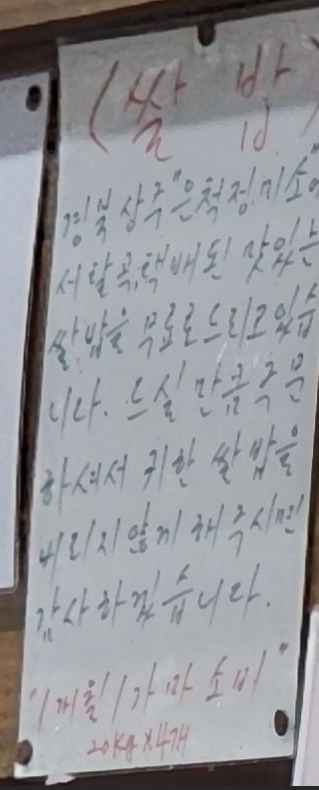 (쌀 밥)
경북 상주"은척정미소"에
서 탈곡,택배된 맛있는
쌀밥을 무료로드리고있습
니다. 드실 만큼주문
하셔서 귀한 쌀밥을
버리지않게 해주시면
감사하겠습니다.
"1개월 1가마 소비"
20kg x 4개